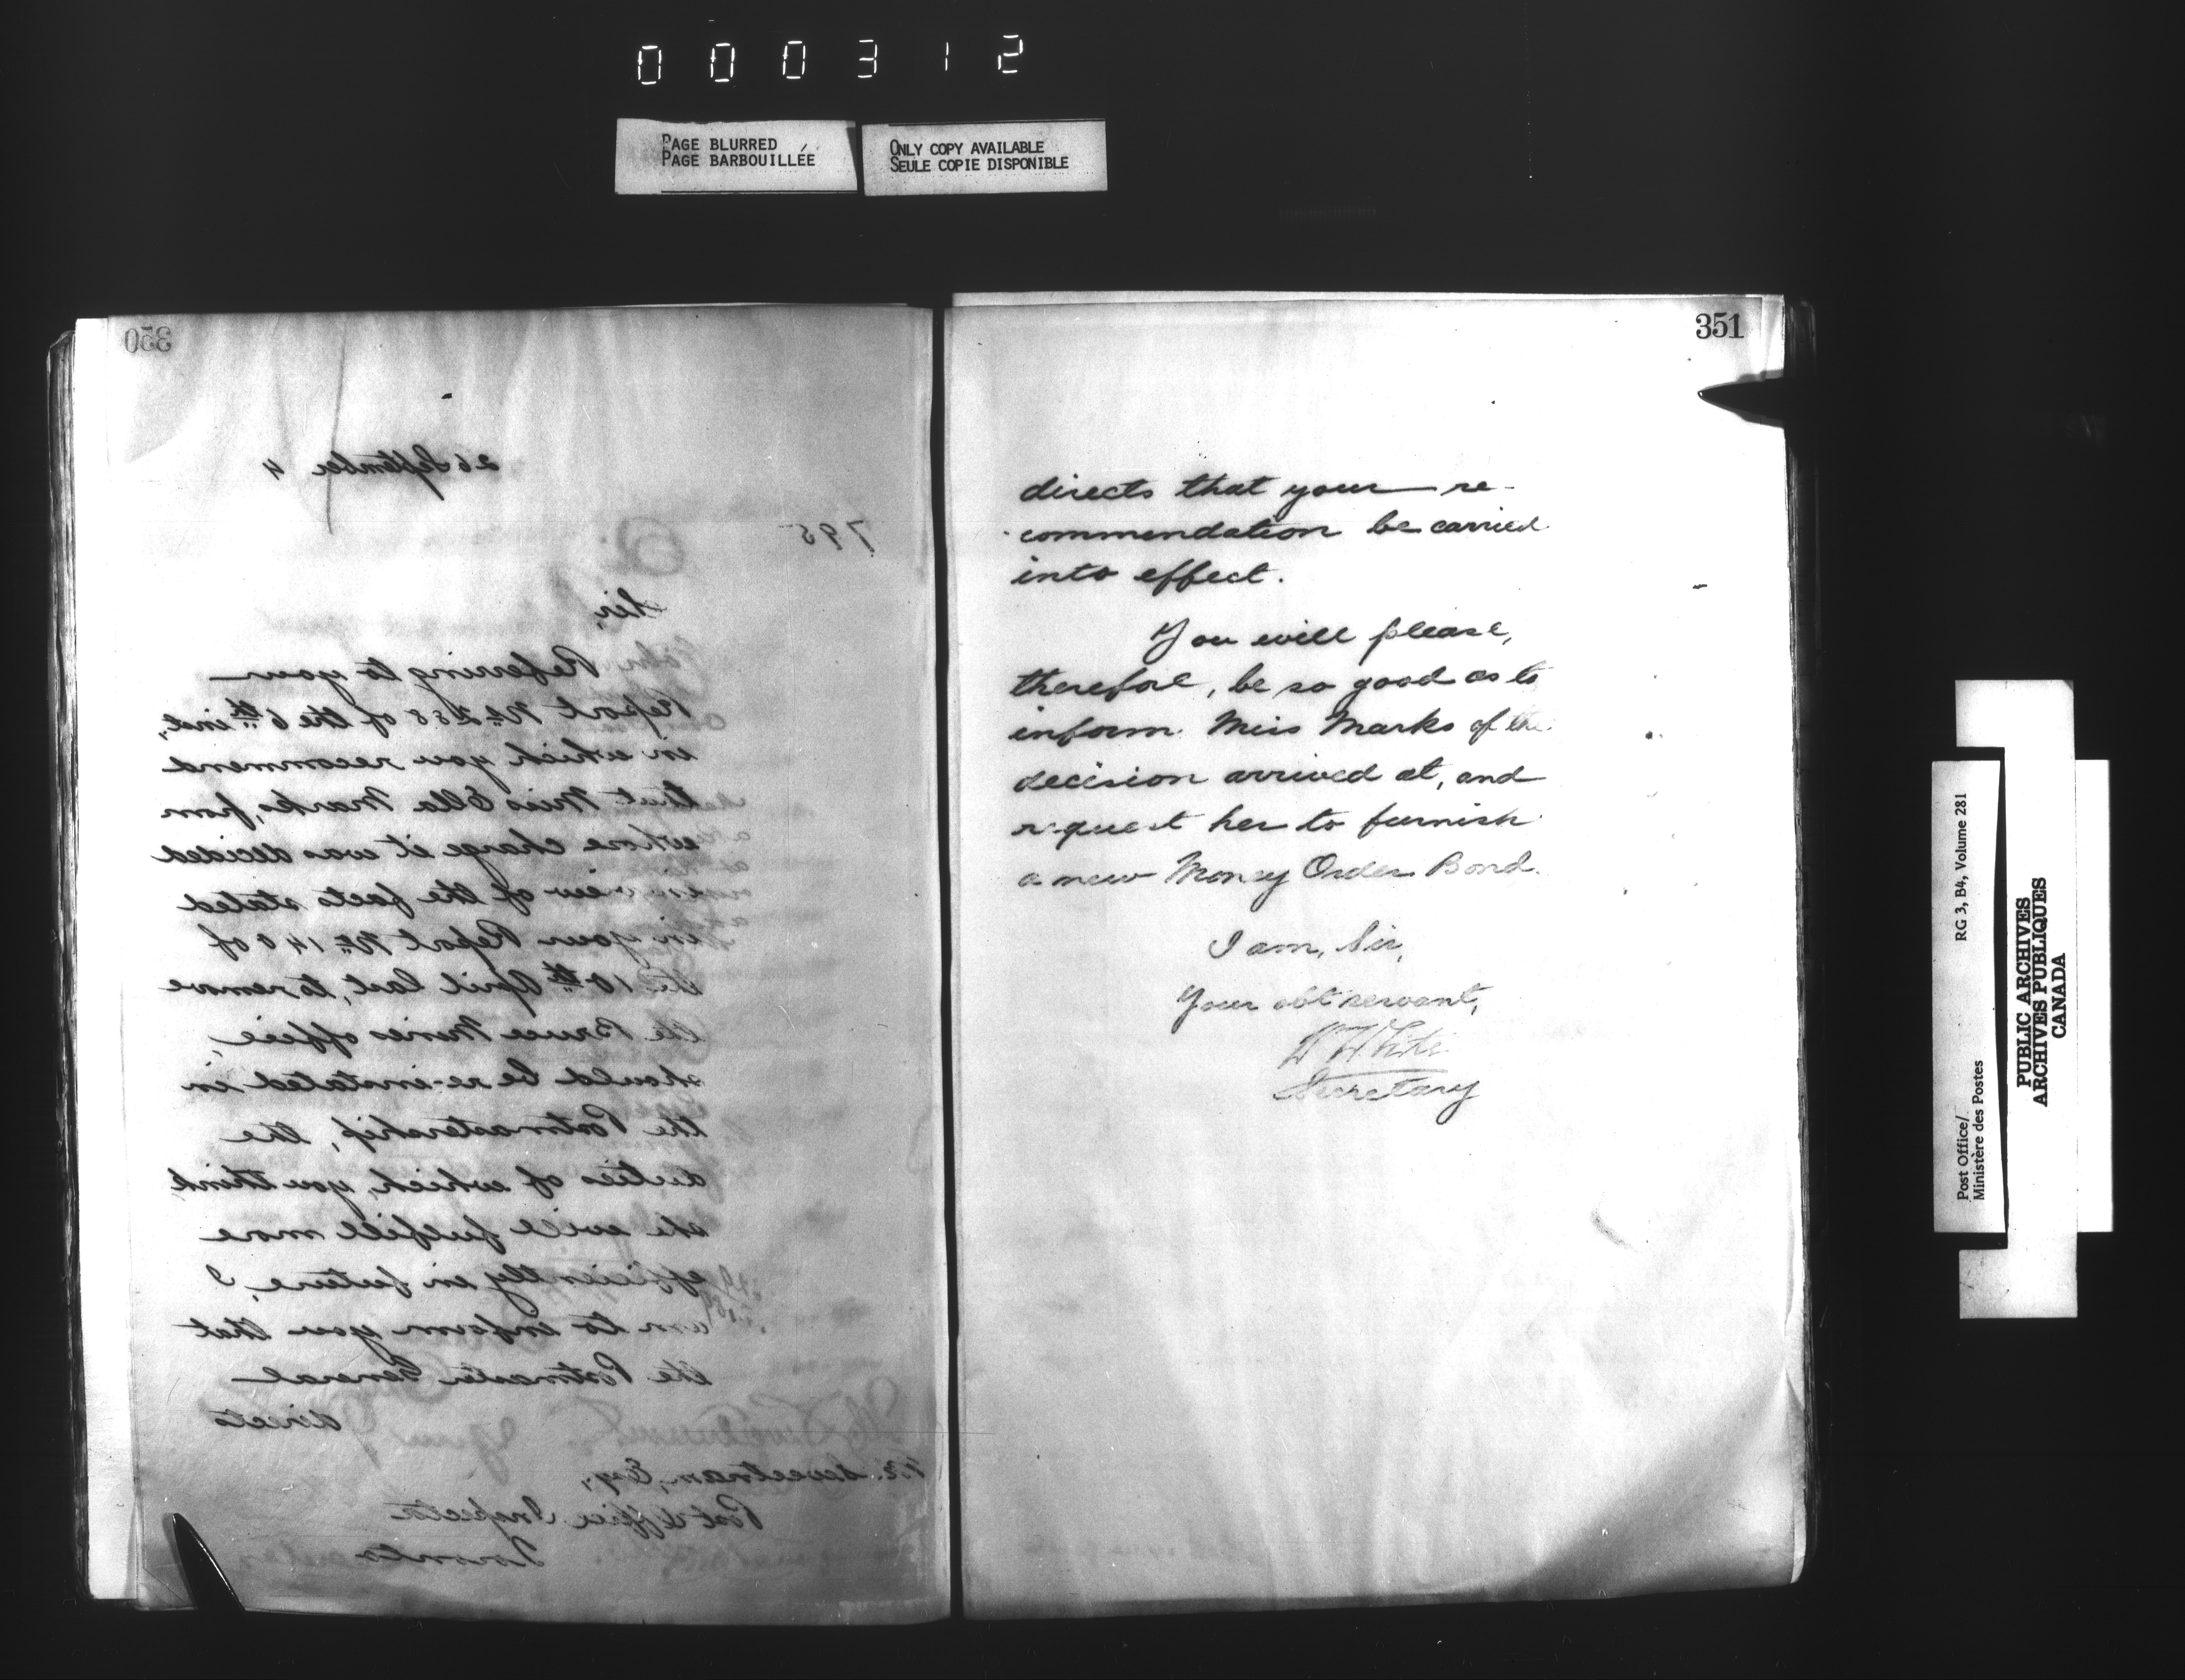 000312
PAGE BLURRED
PAGE BARBOUILLÉE
ONLY COPY AVAILABLE
SEULE COPIE DISPONIBLE
350
26 September 4
795
Sir,
Referring to your
Report No 258 of the 6th inst,
in which you recommend
that Miss Ella Marks, from
whose charge it was decided
in view of the facts stated
in your Report No 140 of
the 10th April last, to remove
the Bruce Mines office,
should be re-instated in
the Postmastership, the
duties of which, you think
she will fulfill more
efficiently in future, I
am to inform you that
the Postmaster General
directs
Sweetnam, Esq,
Post Office Inspector
Toronto
351
directs that your re-
commendation be carried
into effect.
You will please,
therefore, be so good as to
inform Miss Marks of the
decision arrived at, and
request her to furnish
a new Money Order Bond.
I am, Sir,
Your obt servant,
W White
Secretary
Post Office/
Ministère des Postes
RG 3, B4, Volume 281
PUBLIC ARCHIVES
ARCHIVES PUBLIQUES
CANADA